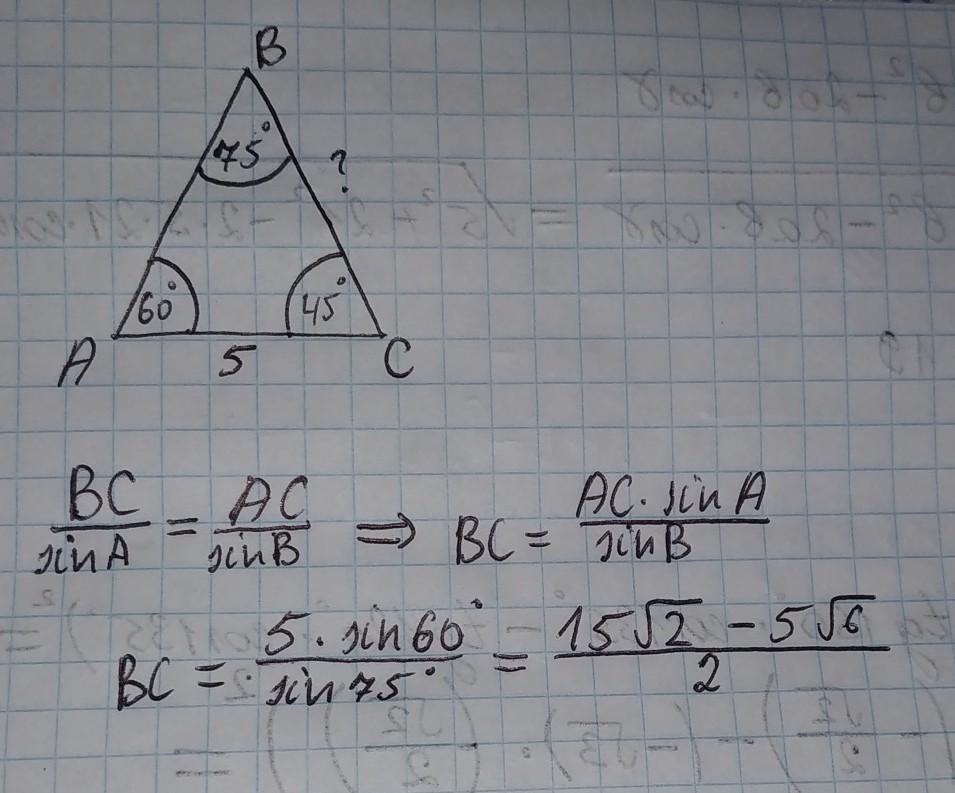 B
75°
?
60° 45°
A 5 C
BC/sinA = AC/sinB ⇒ BC = AC · sinA/sinB
BC = 5 · sin60°/sin75° = 15√2 - 5√6/2